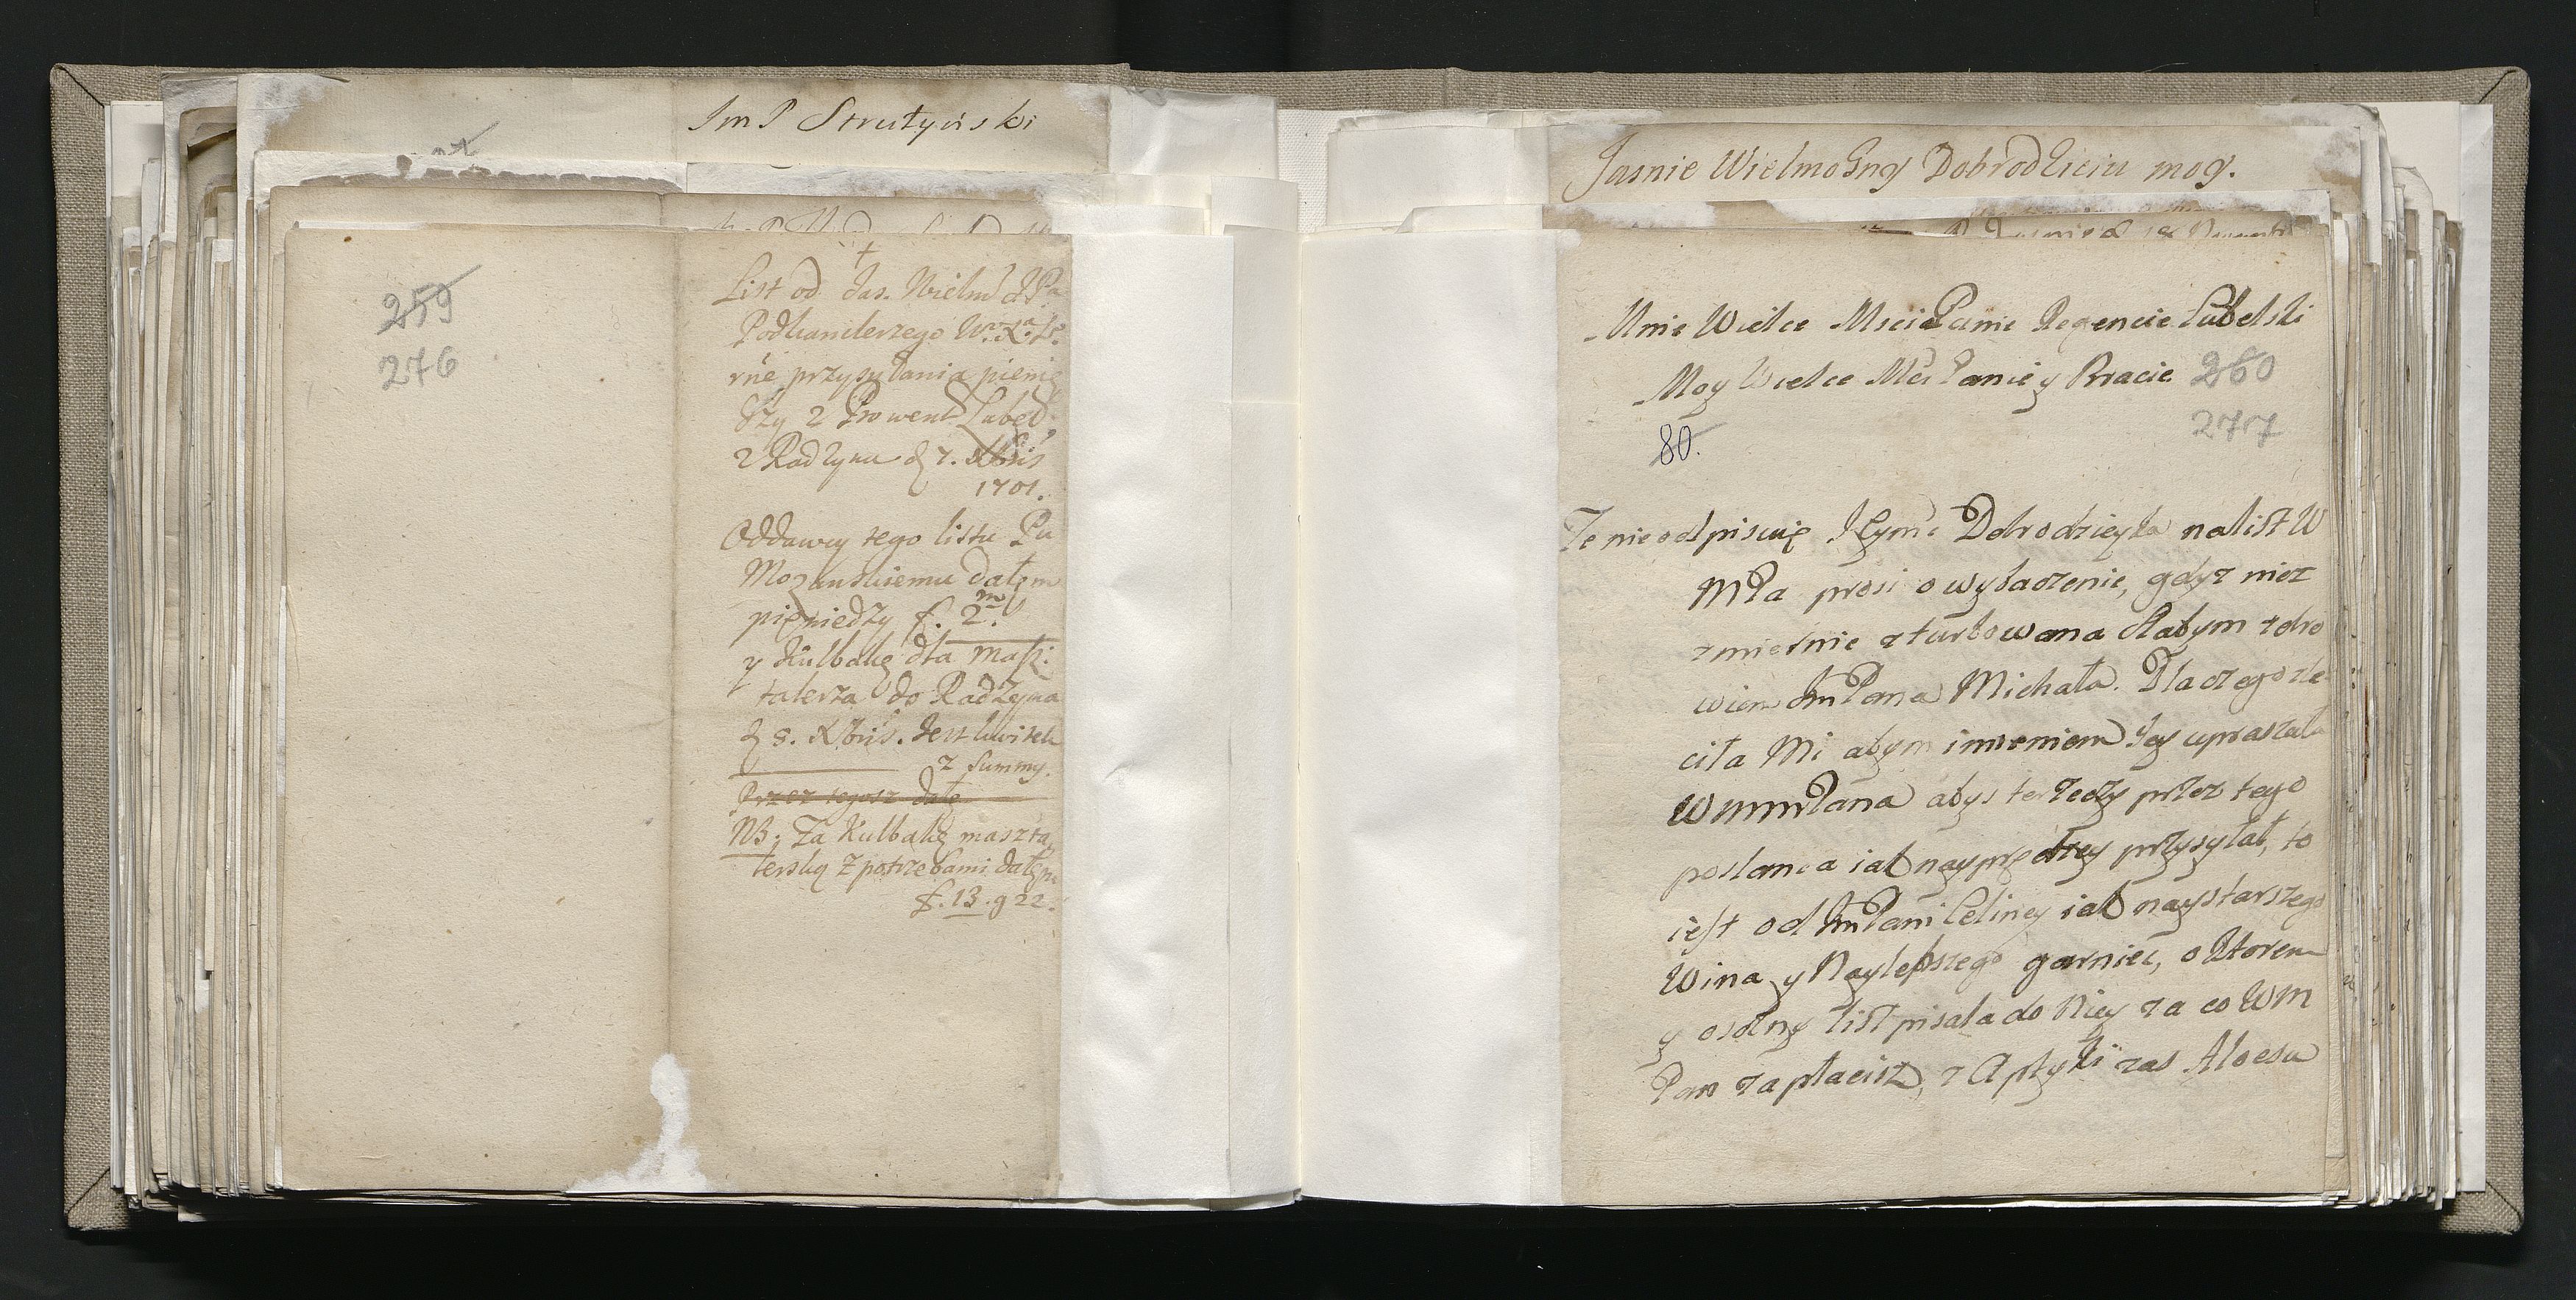 Im P Strutyński
259
276
†
List od Jas. Wielm
Podkanclerzego W. X. L.
rne przysyłania pienię
dzy z Prowent Lubel.
z Radzyna d 7. Xbris
1701.
Oddawcy tego listu Pu
Mozanskiemu dałęm
pieniedzy f. 2.m
y Kulbakę dla maszt:
talerza do Radzyna
d 8. Xbris. Jest kwitek
z summy.
Przez tegosz datę
NB: Za Kulbakę maszta,
lerską z potrzebami dałęm
f. 13. g 22.
Jasnie Wielmożny Dobrodzieiu mog.
Mnie Wielce Msci Panie Regencie Lubelski
Moy Wielce Mci Panie y Bracie
260
277
80.
Ze nie odpisuię Dobrodzieyka na list W
MPa prosi o wybaczenie, gdyz niez
zmiernie zturbowana słabym zdro
wiem ImPana Michała. Dla czego zle
ciła Mi abym imieniem Jey upraszała
WmmPana abys te rzeczy przez tego
posłanca iak nayprędzey przysyłał, to
iest od ImPani Celiney iak naystarszego
Wina y Naylepszego garniec, o ktorem
y osobny list pisała do Niey za co WM
Pan zapłacisz, z Aptyki zas Aloesu